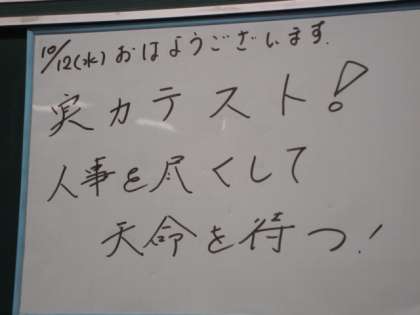 10/12(水) おはようございます.
実力テスト!
人事を尽くして
天命を待つ!